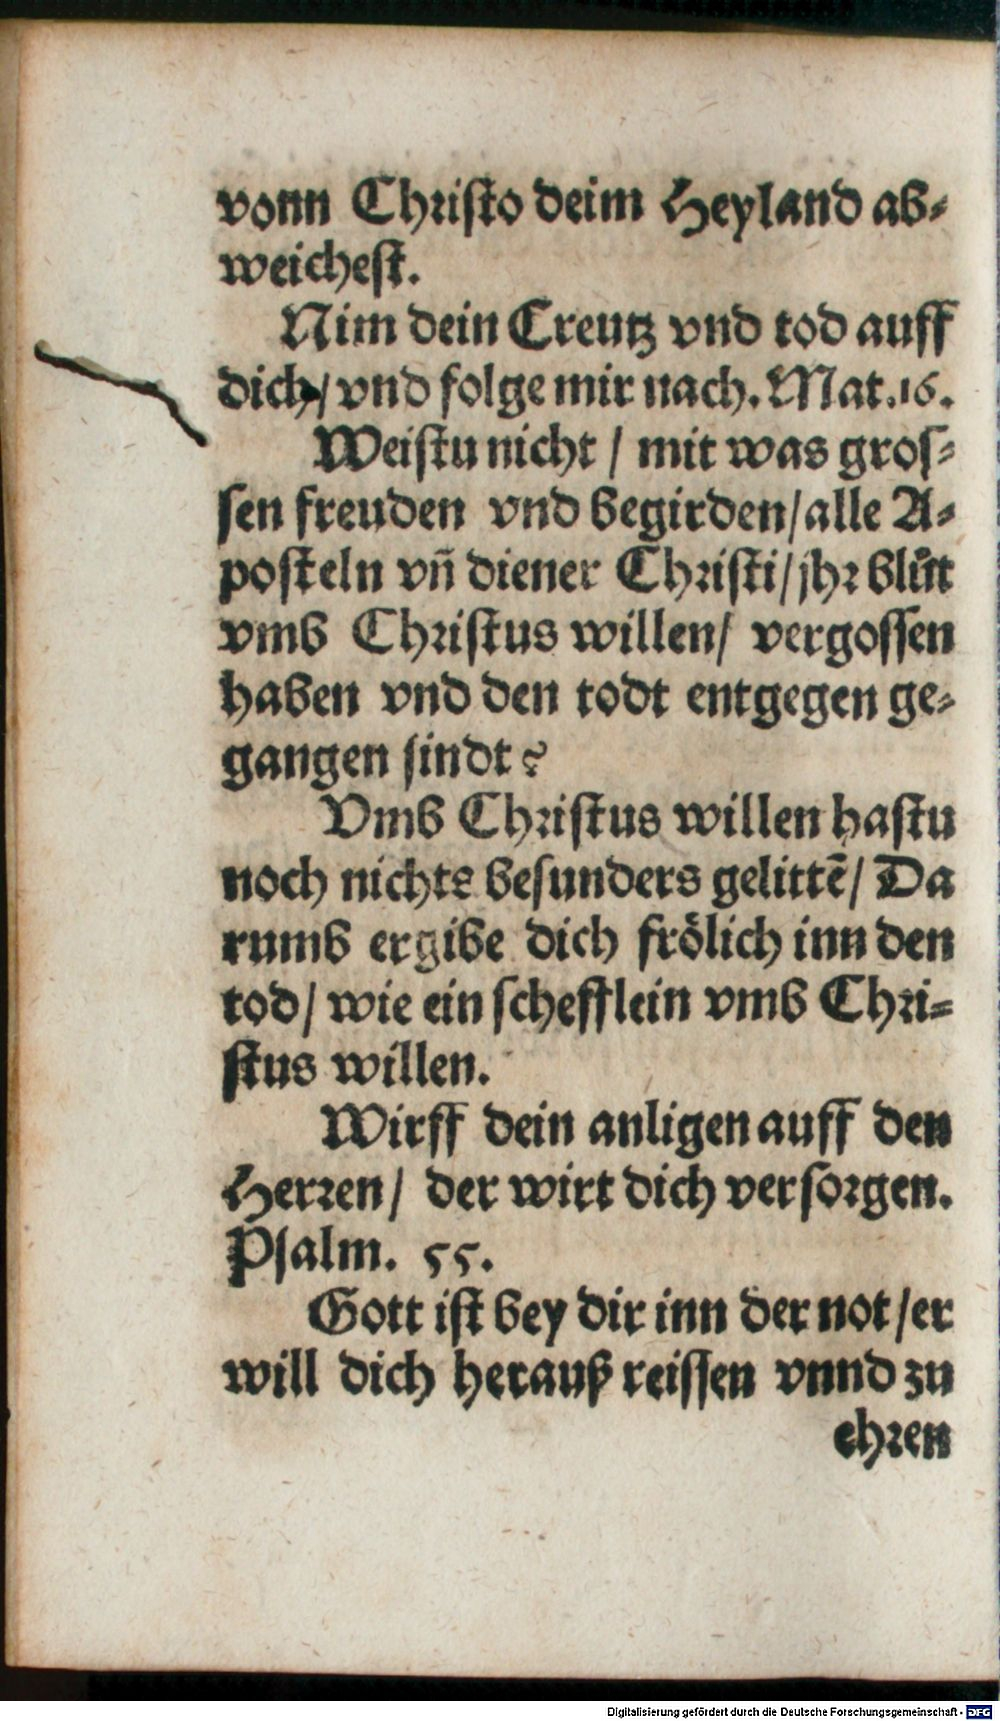 vonn Christo deim Heyland ab⸗
weichest.
Nim dein Creutz vnd tod auff
dich/ vnd folge mir nach. Mat.16.
Weistu nicht / mit was gros⸗
sen freuden vnd begirden/alle A⸗
posteln vñ diener Christi/jhr blůt
vmb Christus willen/ vergossen
haben vnd den todt entgegen ge⸗
gangen sindt?
Vmb Christus willen hastu
noch nichts besunders gelittẽ/ Da
rumb ergibe dich frölich inn den
tod/ wie ein schefflein vmb Chri⸗
stus willen.
Wirff dein anligen auff den
Herren/ der wirt dich versorgen.
Psalm. 55.
Gott ist bey dir inn der not/er
will dich herauß reissen vnnd zu
ehren
Digitalisierung gefördert durch die Deutsche Forschungsgemeinschaft - DFG